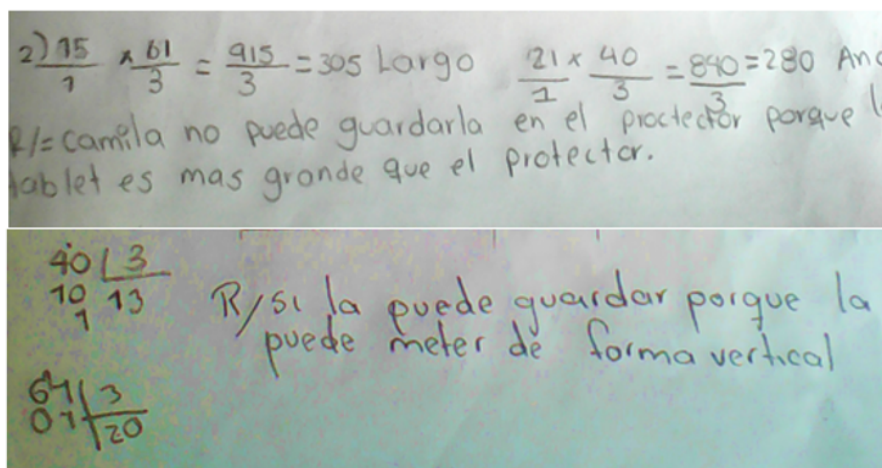 2) 15/1 x 61/3 = 915/3 = 305 Largo 21/1 x 40/3 = 840/3 = 280 Anc
R/= camila no puede guardarla en el proctector porque l
tablet es mas grande que el protector.
40 | 3
10 13
1
R/ si la puede guardar porque la
puede meter de forma vertical
61 | 3
01 20